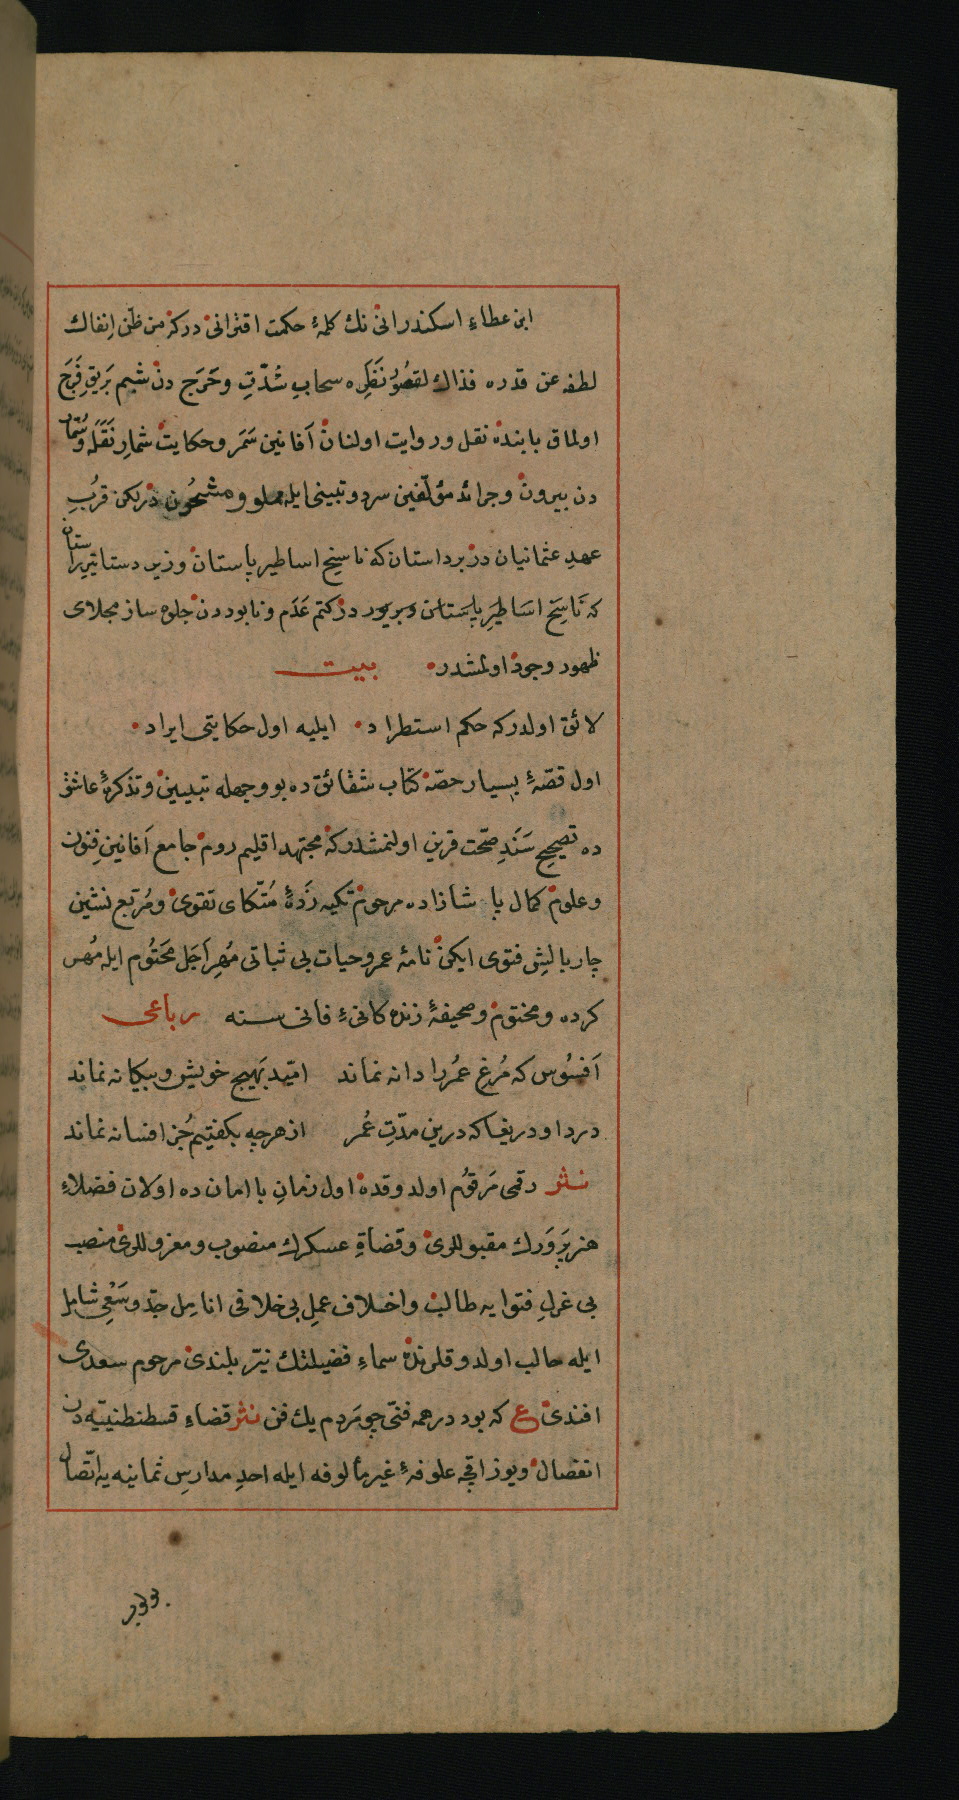 ابن عطاء اسكندرانی نك كلمۀ حكمت اقترانی دركه من ظنّ اِنفاك
لطفه عن قدره فذاك لقصُور نَظَرِه سحابِ شُدّتِ وحَرَج دن شيم بَريقِ فَرَج
اولماق بابنده نقل وروايت اولنان اَفانين سَمَر وحكايت شمارِ نَقَلَه وسُمّار
دن بيرون وجرائد مؤلّفين سرد وتبيينی ايله مملو ومشحُون در لكن قربُ
عهدِ عثمانيان در برداستان كه ناسخِ اساطير پاستان وزير دستايتِراستان
كه نَاسِخِ اسَاطيَرِ پاستان وبريور در كتم عَدَم ونابوددن جلوه ساز مجلای
ظهور وجود اولمشدر بيت
لائق اولدركه حكم استطراد ايليه اول حكايتی ايراد
اول قصّۀ بسيار حصّه كتاب شقائق ده بو وجهله تبيين وتذكرۀ عاشق
ده تصحيحِ سَنَدِ صحّت قرين اولنمشدركه مجتهد اقليم روم جامع اَفانين فِنون
وعلوم كمال پاشازاده مرحوم تكيه زَدۀ مُتّكای تقوی ومُربّع نشين
چاربالش فتوی ايكن نامۀ عمر وحيات بی ثباتی مُهرِ اَجَل مَحتُوم ايله مُهر
كرده ومختوم وصحيفۀ زنده كانیِٔ فانی سنه رباعی
اَفسُوس كه مُرغ عمُررا دانه نماند اميّد بَهيچ خويش وبيكانه نماند
دردا ودريغاكه درين مدّتِ عُمر ازهرچه بكفتيم جُز افسانه نماند
نثر رقمی مَرقوُم اولدوقده اول زمانِ با امان ده اولان فضلاءِ
هنرپَروَرك مقبوللری وقضاةِ عسكرك منصوب ومعزوللری منصبِ
بی عَزلِ فتوايه طالب واخلاف عملِ بی خلافی اناملِ جدّ وسَعْیِ شامل
ايله حالب اولدوقلرنده سماءِ فضيلتك نيّر بلندی مرحوم سعدی
افندی ع كه بود درهمه فنّی چو مَردم يك فن نثر قضاءِ قسطنطنيّيه دن
انفصال ويوز اقچه علوفۀ غيرمألوفه ايله احدِ مدارسِ ثمانيه يه اتّصال